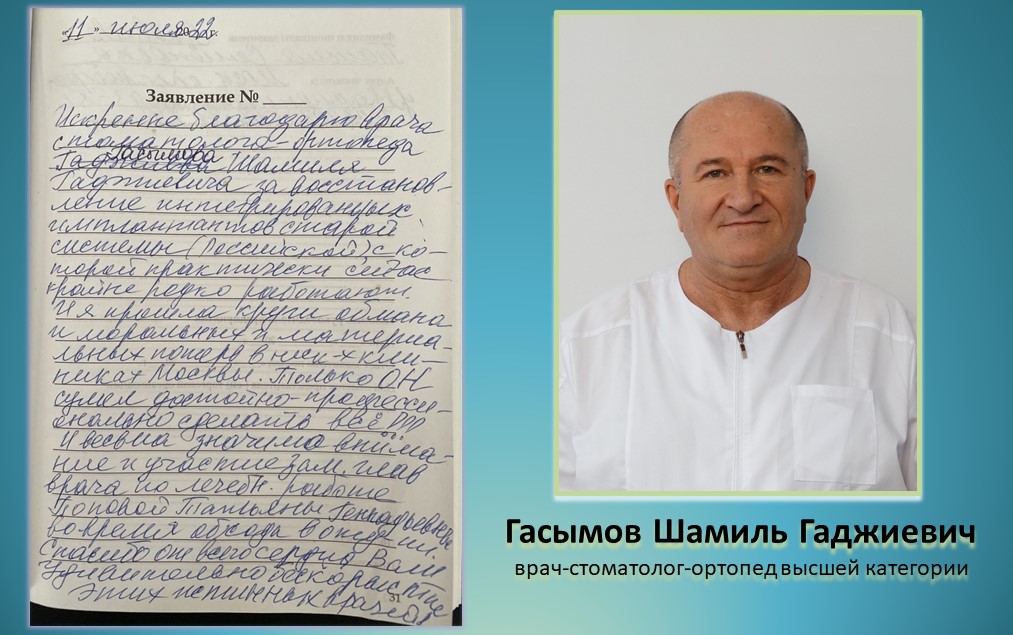 «11» июля 2022г.
Заявление № ____
Искренне благодарю врача
стоматолога-ортопеда
Гасымова Шамиля
Гаджиевича за восстанов-
ление интегрированных
имплантантов старой
системы (Российской), с ко-
торой практически сейчас
крайне редко работают.
И я прошла круги обмана
и моральных и материа-
льных потерь в неск-х кли-
никах Москвы. Только ОН
сумел достойно-професси-
онально сделать всё!!!
И весьма значимо внима-
ние и участие зам. глав
врача по лечебн. работе
Поповой Татьяны Геннадьевны
во время обхода в отд-нии.
Спасибо от всего сердца Вам
Удивительно бескорыстие
этих истинных врачей!
31
Гасымов Шамиль Гаджиевич
врач-стоматолог-ортопед высшей категории